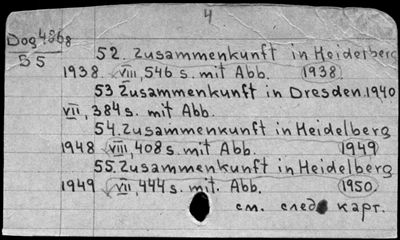 4
Dog 4368
55
52. Zusammenkunft in Heidelberg
1938. VIII, 546 s. mit Abb. (1938)
53 Zusammenkunft in Dresden.1940
VII, 384 s. mit Abb.
54. Zusammenkunft in Heidelberg
1948 VIII, 408 s. mit Abb. 1949
55. Zusammenkunft in Heidelberg
1949 VII, 444 s. mit. Abb. (1950)
см. след карт.